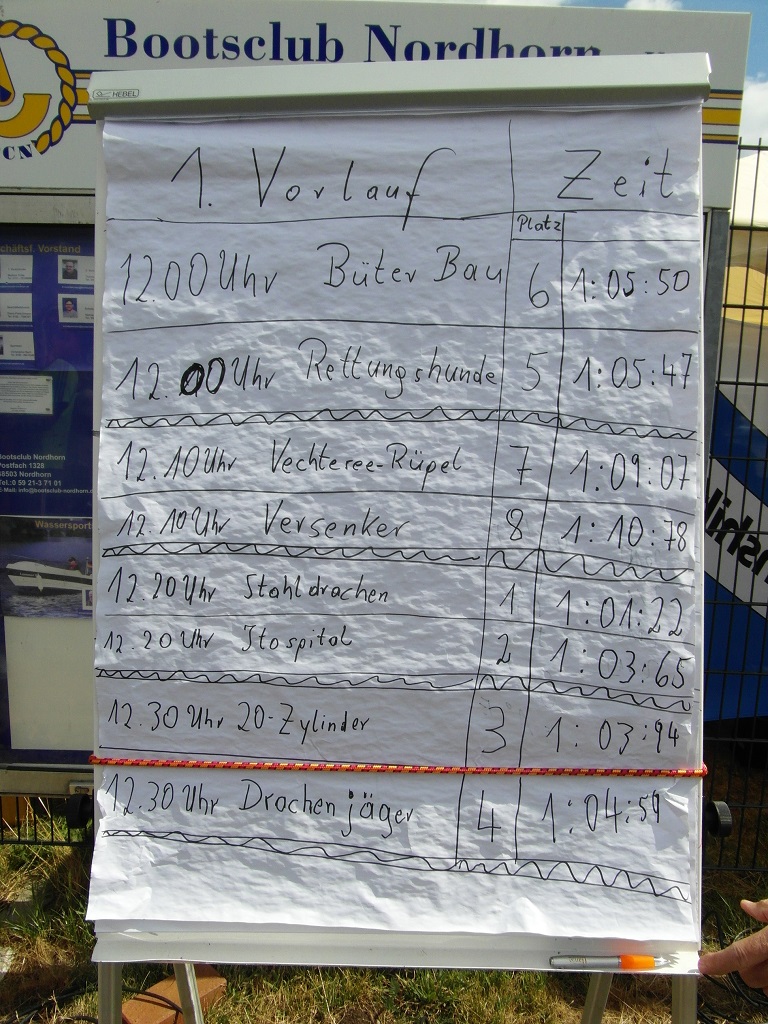 Bootsclub Nordhorn
HEBEL
CN
chäftsf. Vorstand
1. Vorlauf Zeit
Platz
12.00 Uhr Büter Bau 6 1:05:50
12.00 Uhr Rettungshunde 5 1:05:47
12.10 Uhr Vechtesee-Rüpel 7 1:09:07
12.10 Uhr Versenker 8 1:10:78
12.20 Uhr Stahldrachen 1 1:01:22
12.20 Uhr Hospital 2 1:03:65
12.30 Uhr 20-Zylinder 3 1:03:94
12.30 Uhr Drachenjäger 4 1:04:59
Bootsclub Nordhorn
Postfach 1328
48503 Nordhorn
Tel.: 0 59 21-3 71 01
E-Mail: info@bootsclub-nordhorn.d
Wassersport